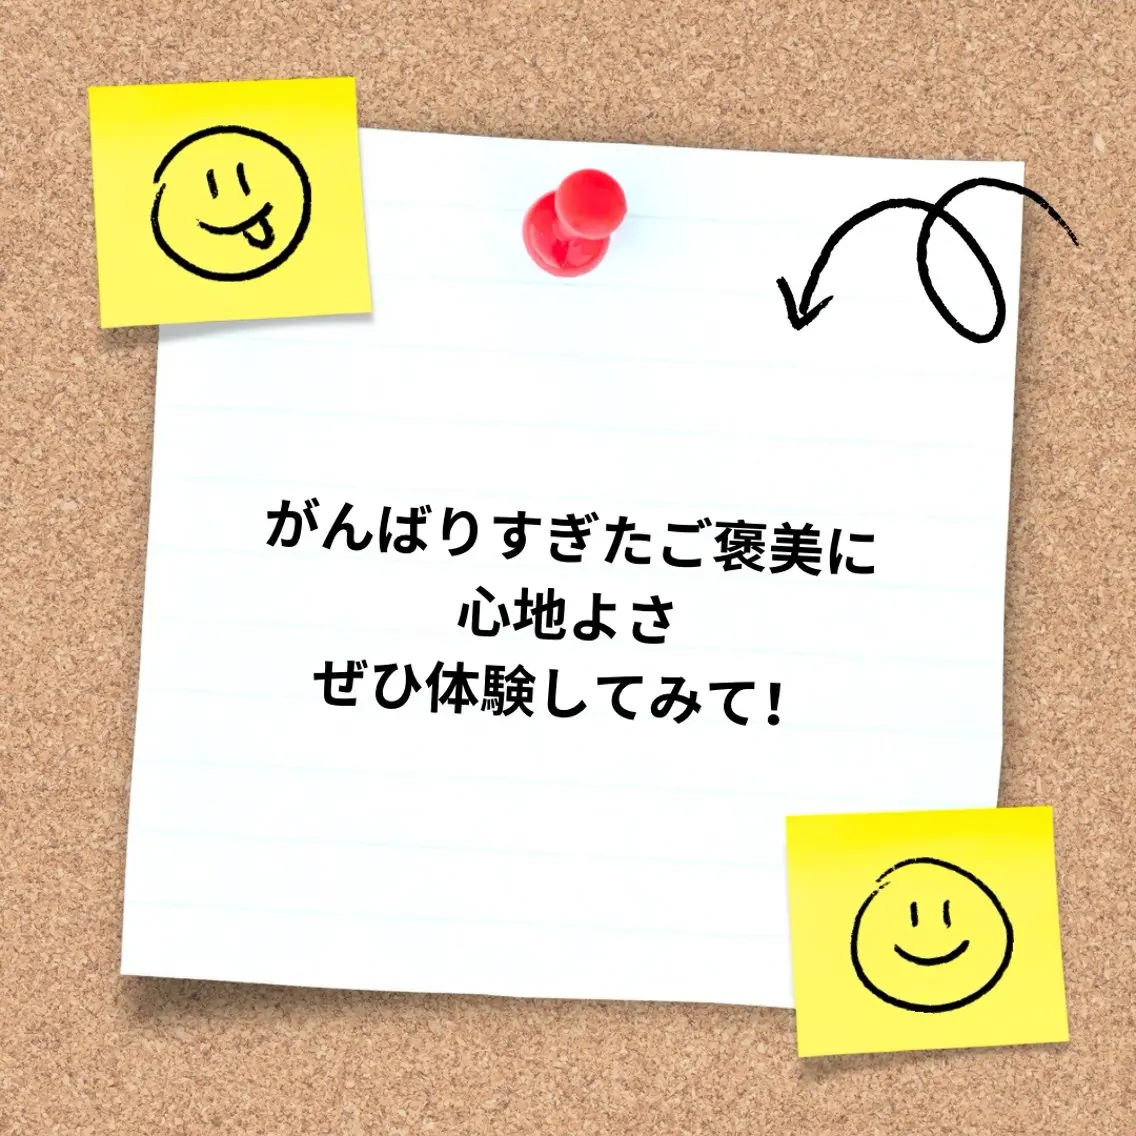 がんばりすぎたご褒美に
心地よさ
ぜひ体験してみて!